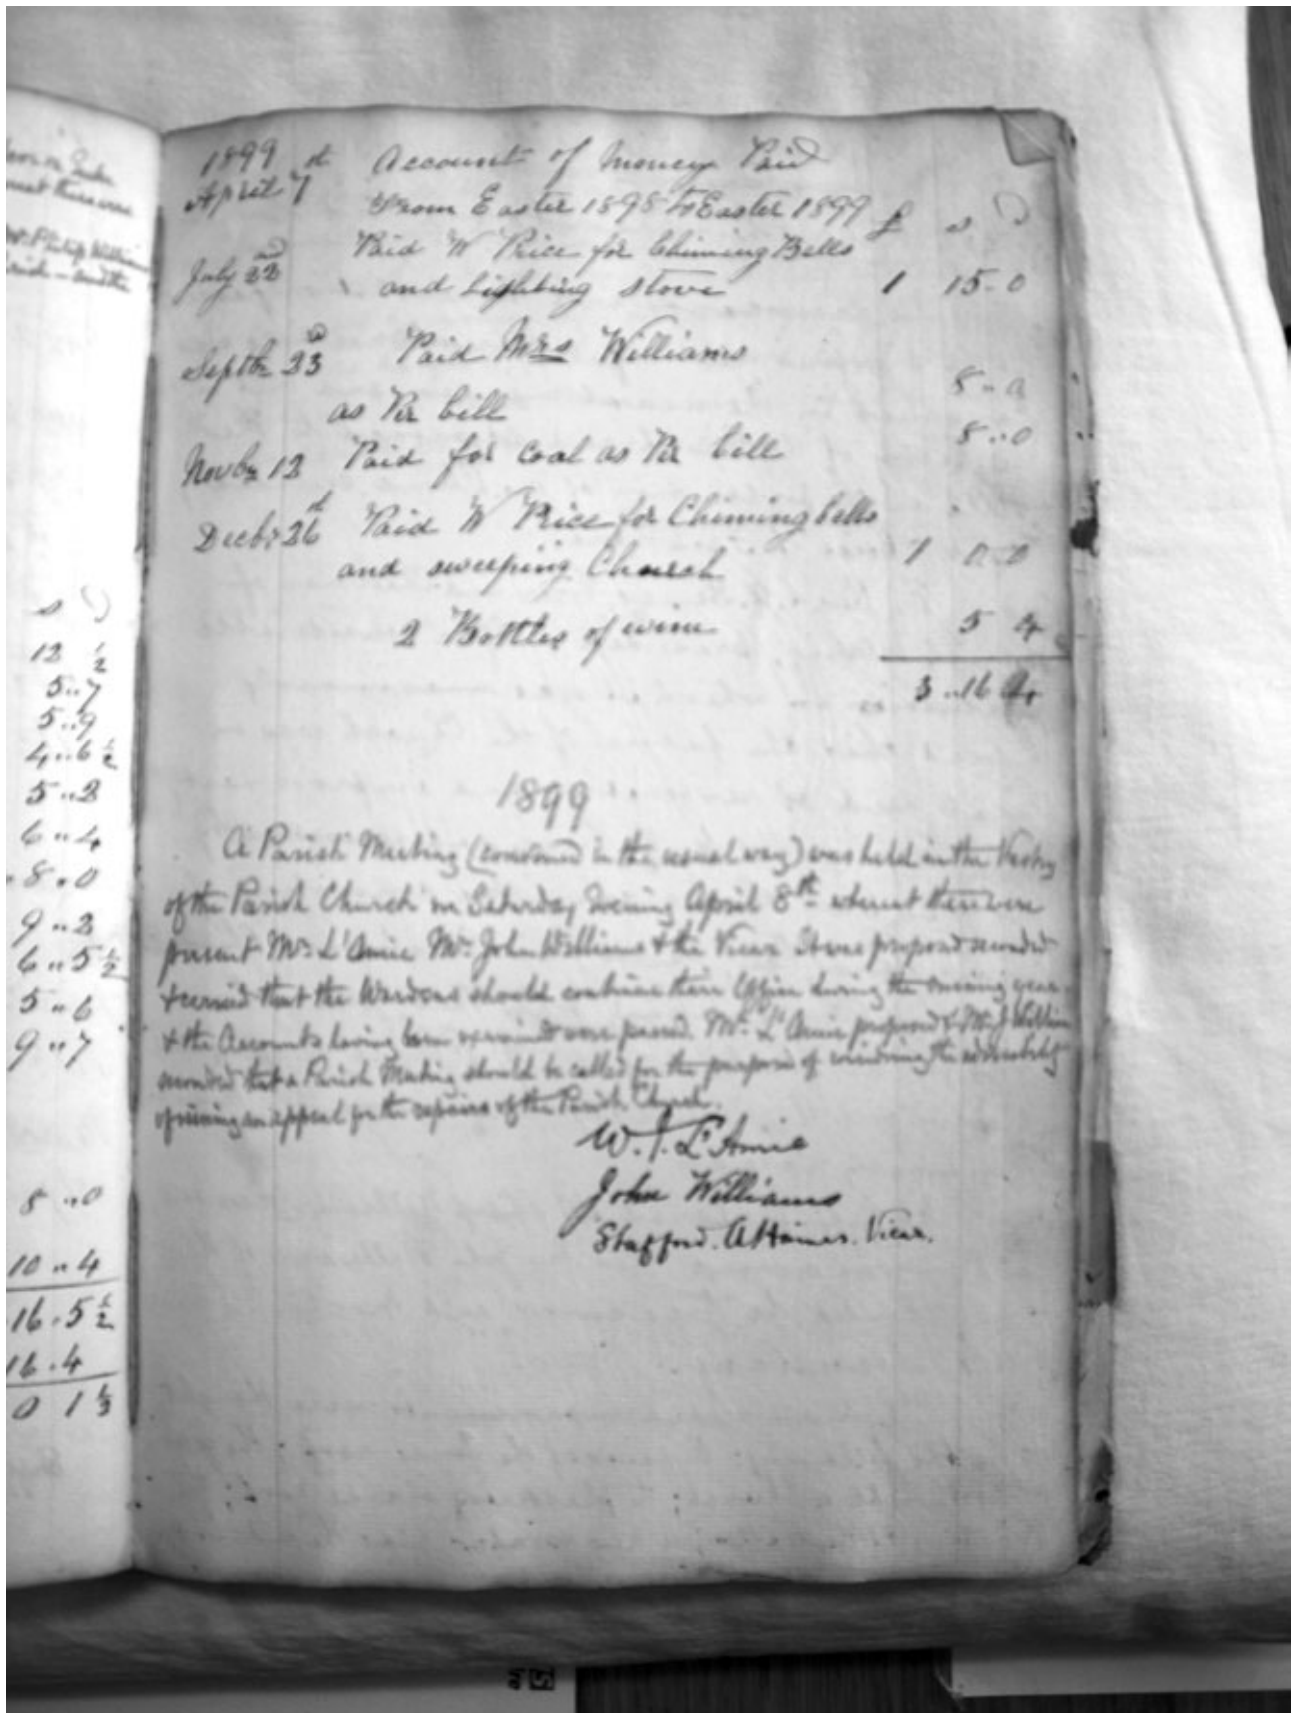 s D
12 ½
5..7
5..9
4..6 ½
5..2
6..4
8.0
9..2
6..5 ½
5..6
9..7
8..0
10..4
16.5 ½
16.4
0 1 ½
1899 Account of Money Paid
April 1st From Easter 1898 to Easter 1899 £ s D
July 22nd Paid W Price for Chiming Bells
and lighting stove 1 15-0
Septbr 23rd Paid Mrs Williams
as Per bill 8..0
Novbr 12 Paid for coal as Per bill 8..0
Decbr 26 Paid W Price for Chiming bells
and sweeping Church 1 0..0
2 Bottles of wine 5 4
3..16 4
1899
A Parish Meeting (convened in the usual way) was held in the Vestry
of the Parish Church on Saturday Evening April 8th whereat there were
present Mr. L'Amie Mr. John Williams & the Vicar It was proposed seconded
& carried that the Wardens should continue their Office during the ensuing year
& the Accounts having been examined were passed. Mr. L'Amie proposed & Mr. J William
seconded that a Parish Meeting should be called for the purpose of considering the advisability
of issuing an appeal for the repairs of the Parish Church.
W. J. L'Amie
John Williams
Stafford. A Haines. Vicar.